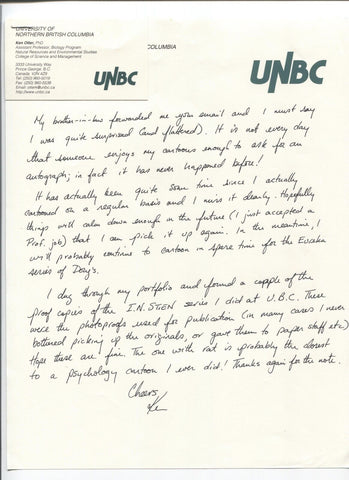 UNIVERSITY OF
NORTHERN BRITISH COLUMBIA
Ken Otter, PhD
Assistant Professor, Biology Program
Natural Resources and Environmental Studies
College of Science and Management
3333 University Way
Prince George, B.C.
Canada V2N 4Z9
UNBC
COLUMBIA
UNBC
My brother-in-law forwarded me your email and I must say
I was quite surprised (and flattered). It is not every day
that someone enjoys my cartoons enough to ask for an
autograph; in fact it has never happened before!
It has actually been quite some time since I actually
cartooned on a regular basis and I miss it dearly. Hopefully
things will calm down enough in the future (I just accepted a
Prof. job) that I can pick it up again. In the meantime, I
will probably continue to cartoon in spare time for the Eureka
series of Doug's.
I dug through my portfolio and found a couple of the
proof copies of the I.N. STIEN series I did at U.B.C. These
were the photoproofs used for publication (in many cases I never
bothered picking up the originals, or gave them to paper staff etc)
Hope these are fine. The one with rat is probably the closest
to a psychology cartoon I ever did! Thanks again for the note.
Cheers,
Ken